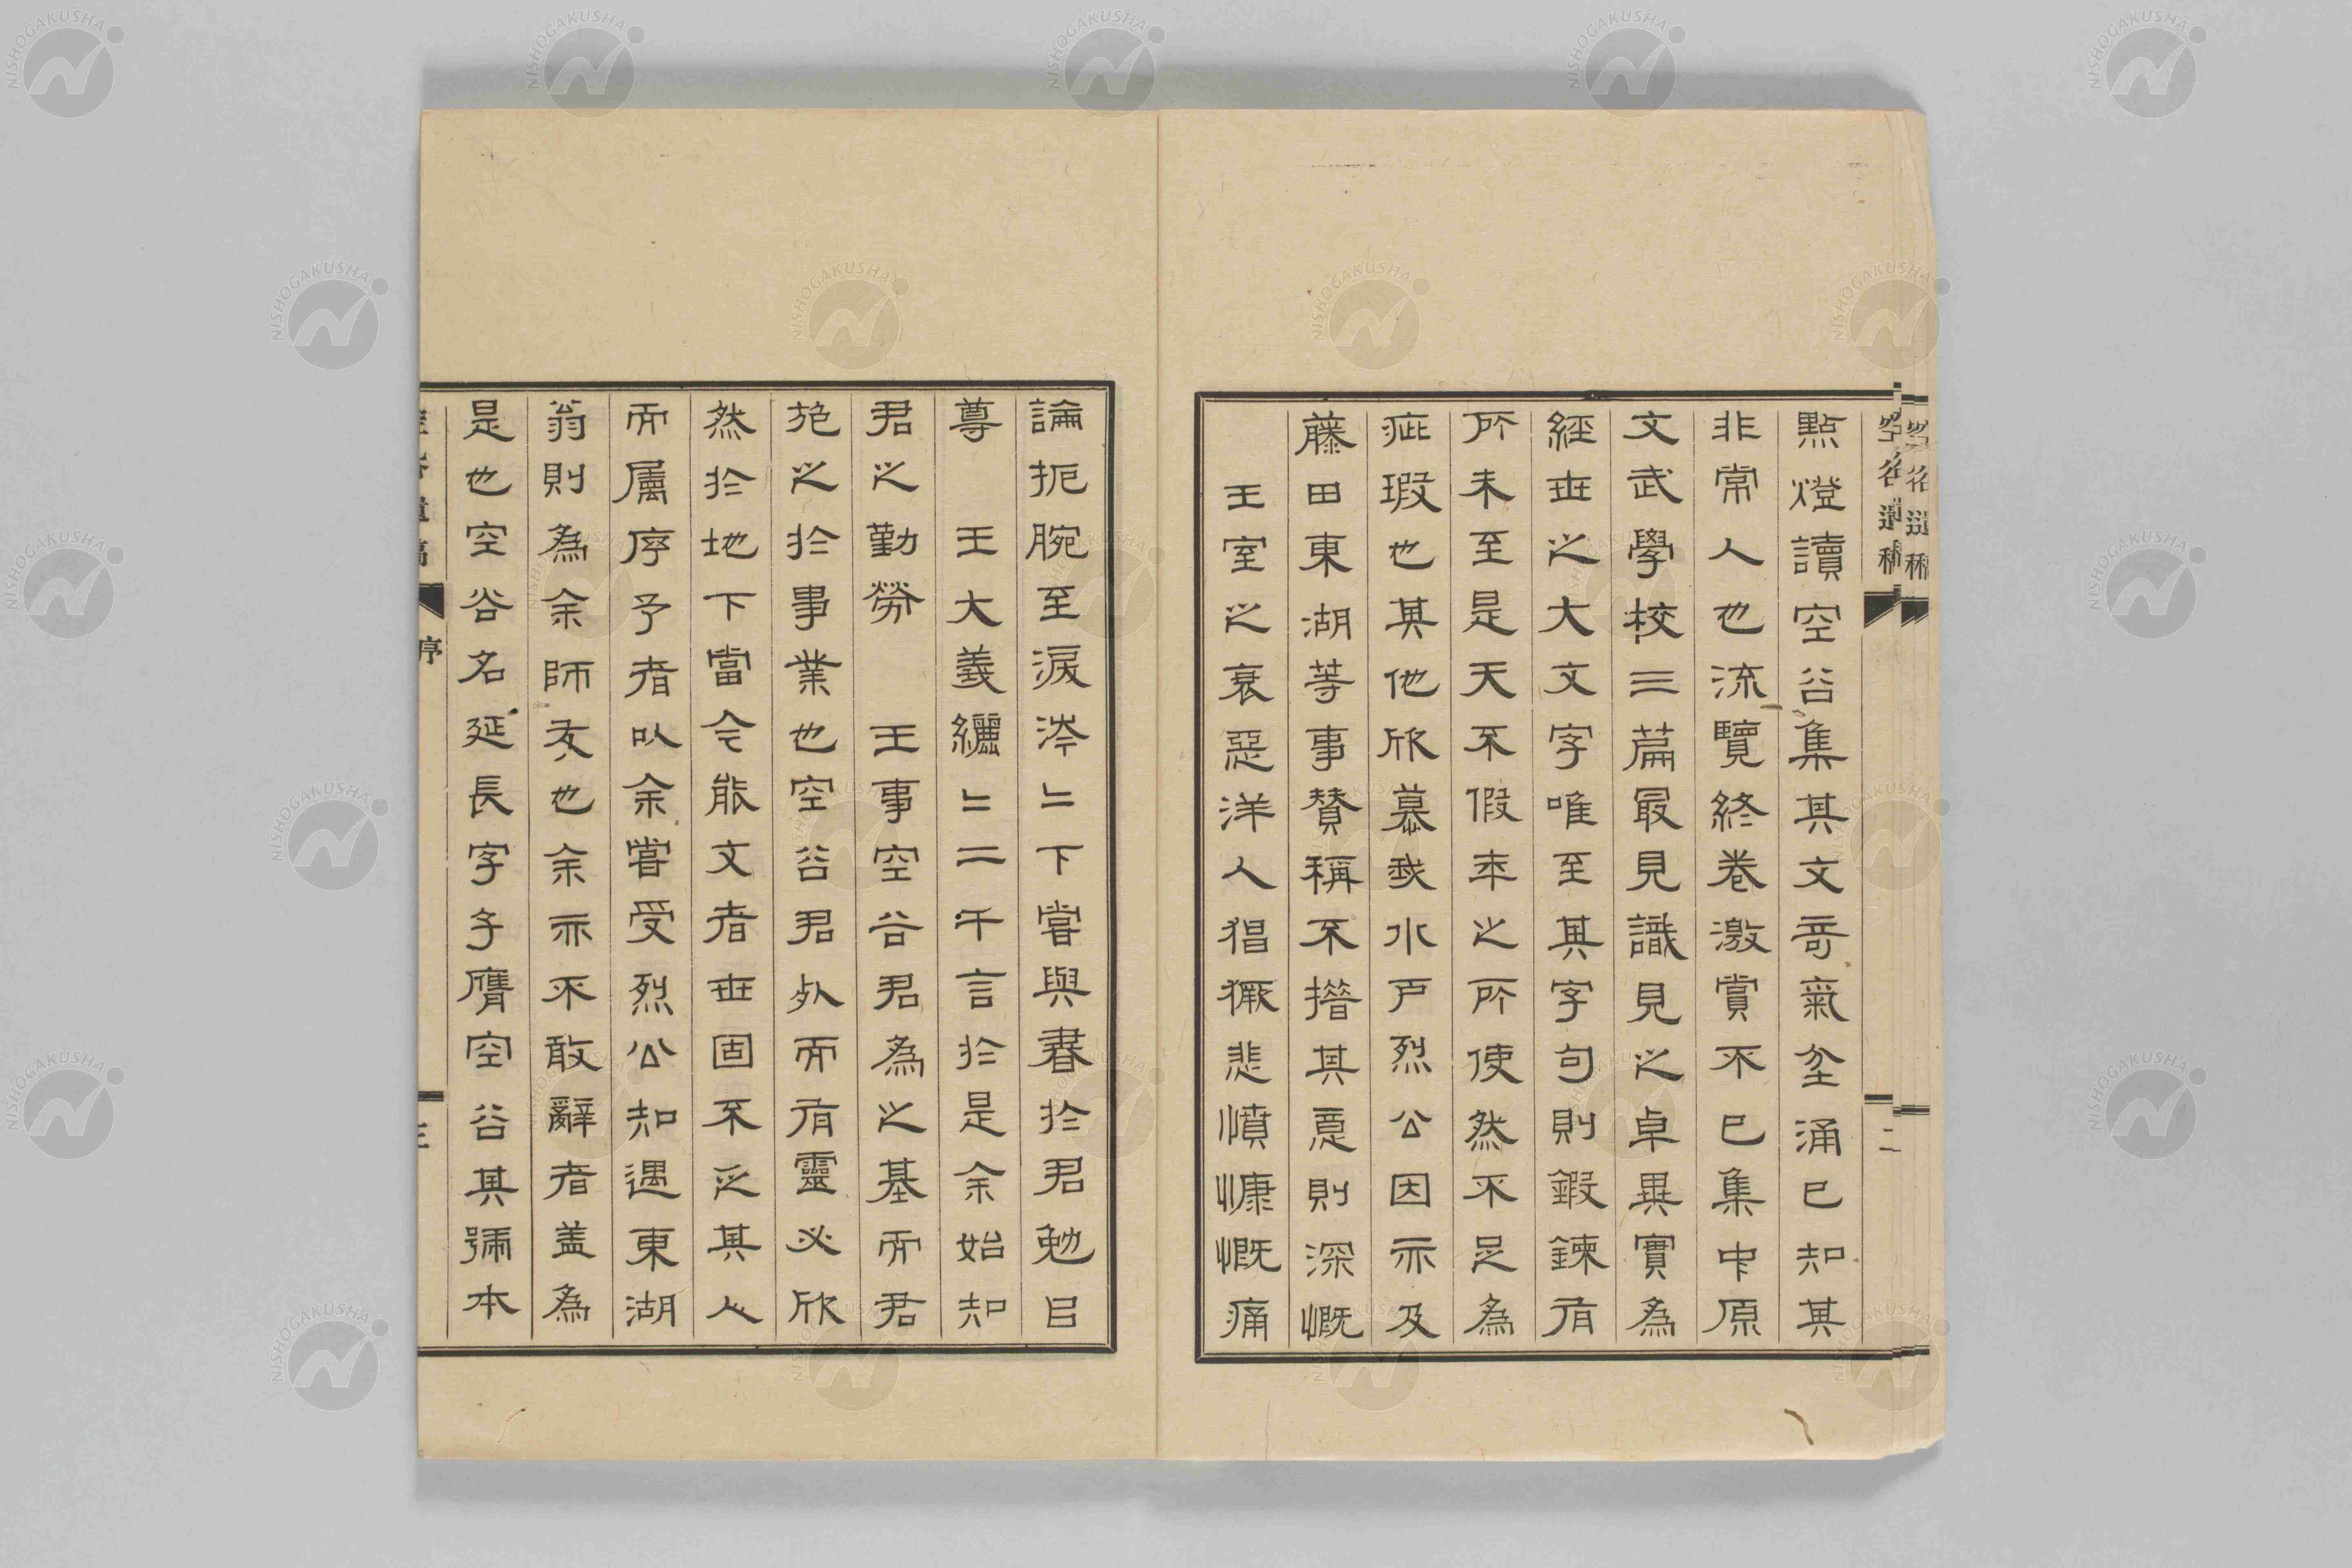 空谷遺稿
二
點燈讀空谷集其文奇氣坌涌已知其
非常人也流覽終卷激賞不已集中原
文武學校三篇最見識見之卓異實為
經世之大文字唯至其字句則鍛鍊有
所未至是天不假年之所使然不足為
疵瑕也其他欣慕我水戶烈公因亦及
藤田東湖等事贊稱不措其意則深慨
王室之衰惡洋人猖獗悲憤慷慨痛
論扼腕至淚涔〻下嘗與書於君勉目
尊　王大義纚〻二千言於是余始知
君之勤勞　王事空谷君為之基而君
施之於事業也空谷君外而有靈必欣
然於地下當今能文者世固不乏其人
而屬序予者以余嘗受烈公知遇東湖
翁則為余師友也余亦不敢辭者盖為
是也空谷名延長字子膺空谷其號本
序
NISHOGAKUSHA